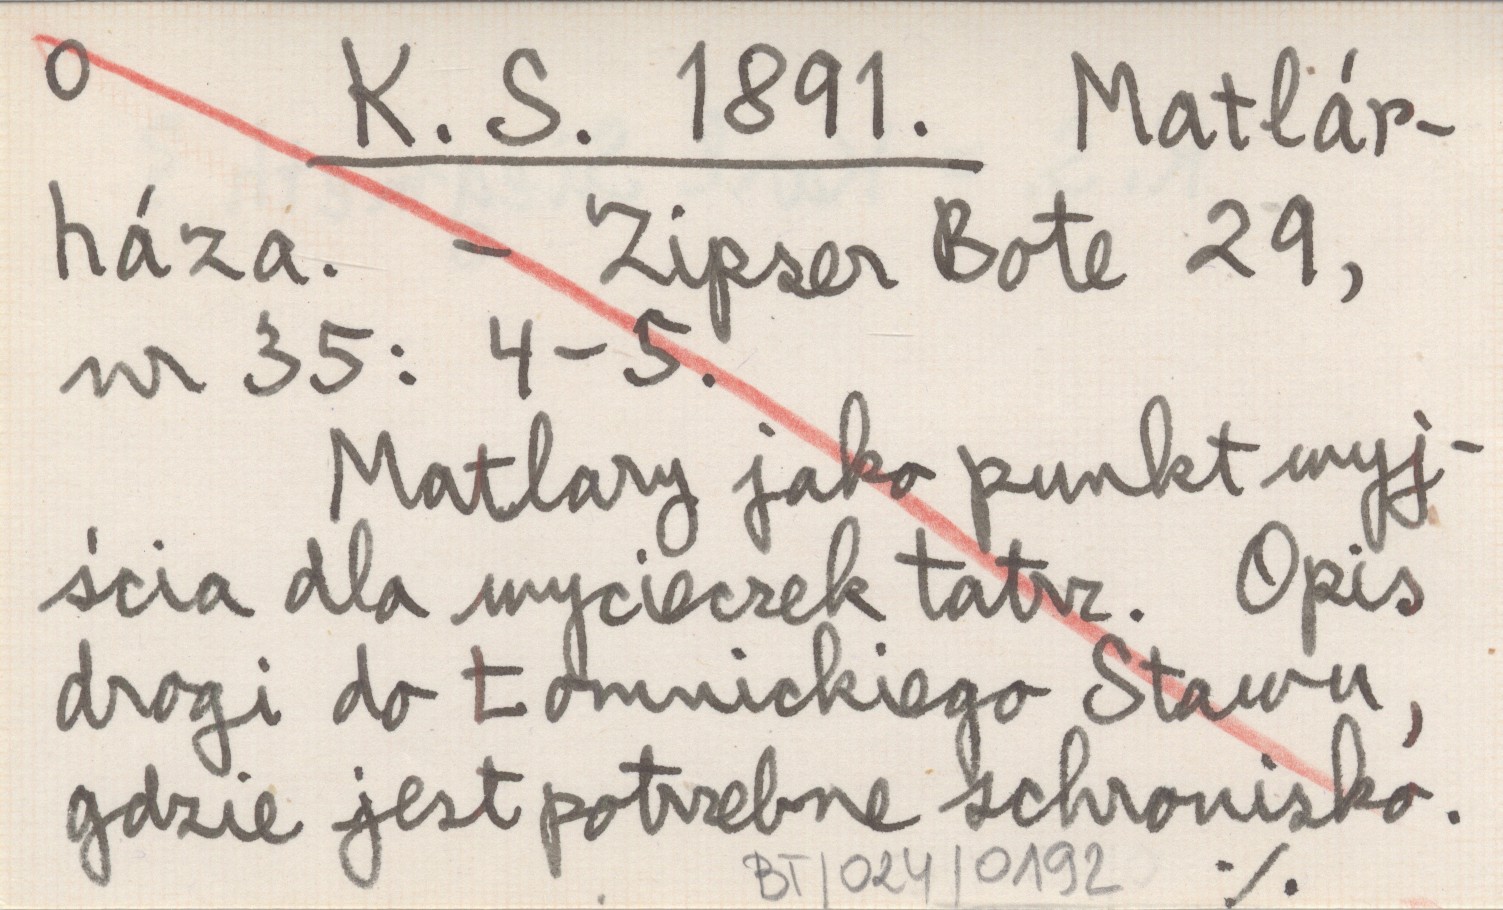 O K. S. 1891. Matlár-
háza. – Zipser Bote 29,
nr 35: 4–5.
Matlary jako punkt wyj-
ścia dla wycieczek tatrz. Opis
drogi do Łomnickiego Stawu,
gdzie jest potrzebne schronisko.
BT/024/0192 ·/.